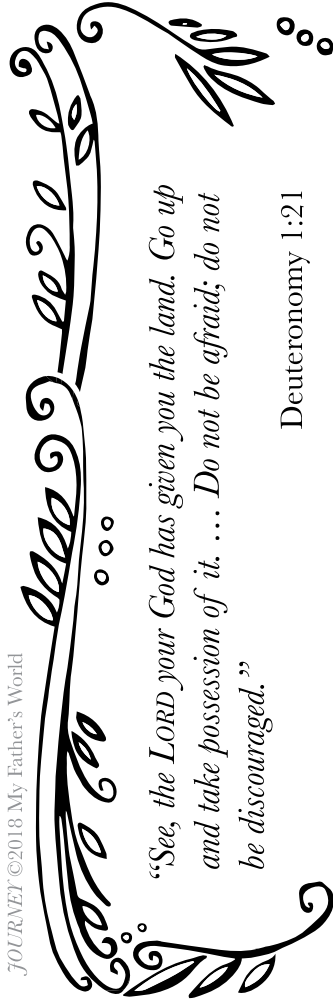 JOURNEY ©2018 My Father's World
“See, the LORD your God has given you the land. Go up
and take possession of it. … Do not be afraid; do not
be discouraged.”
Deuteronomy 1:21